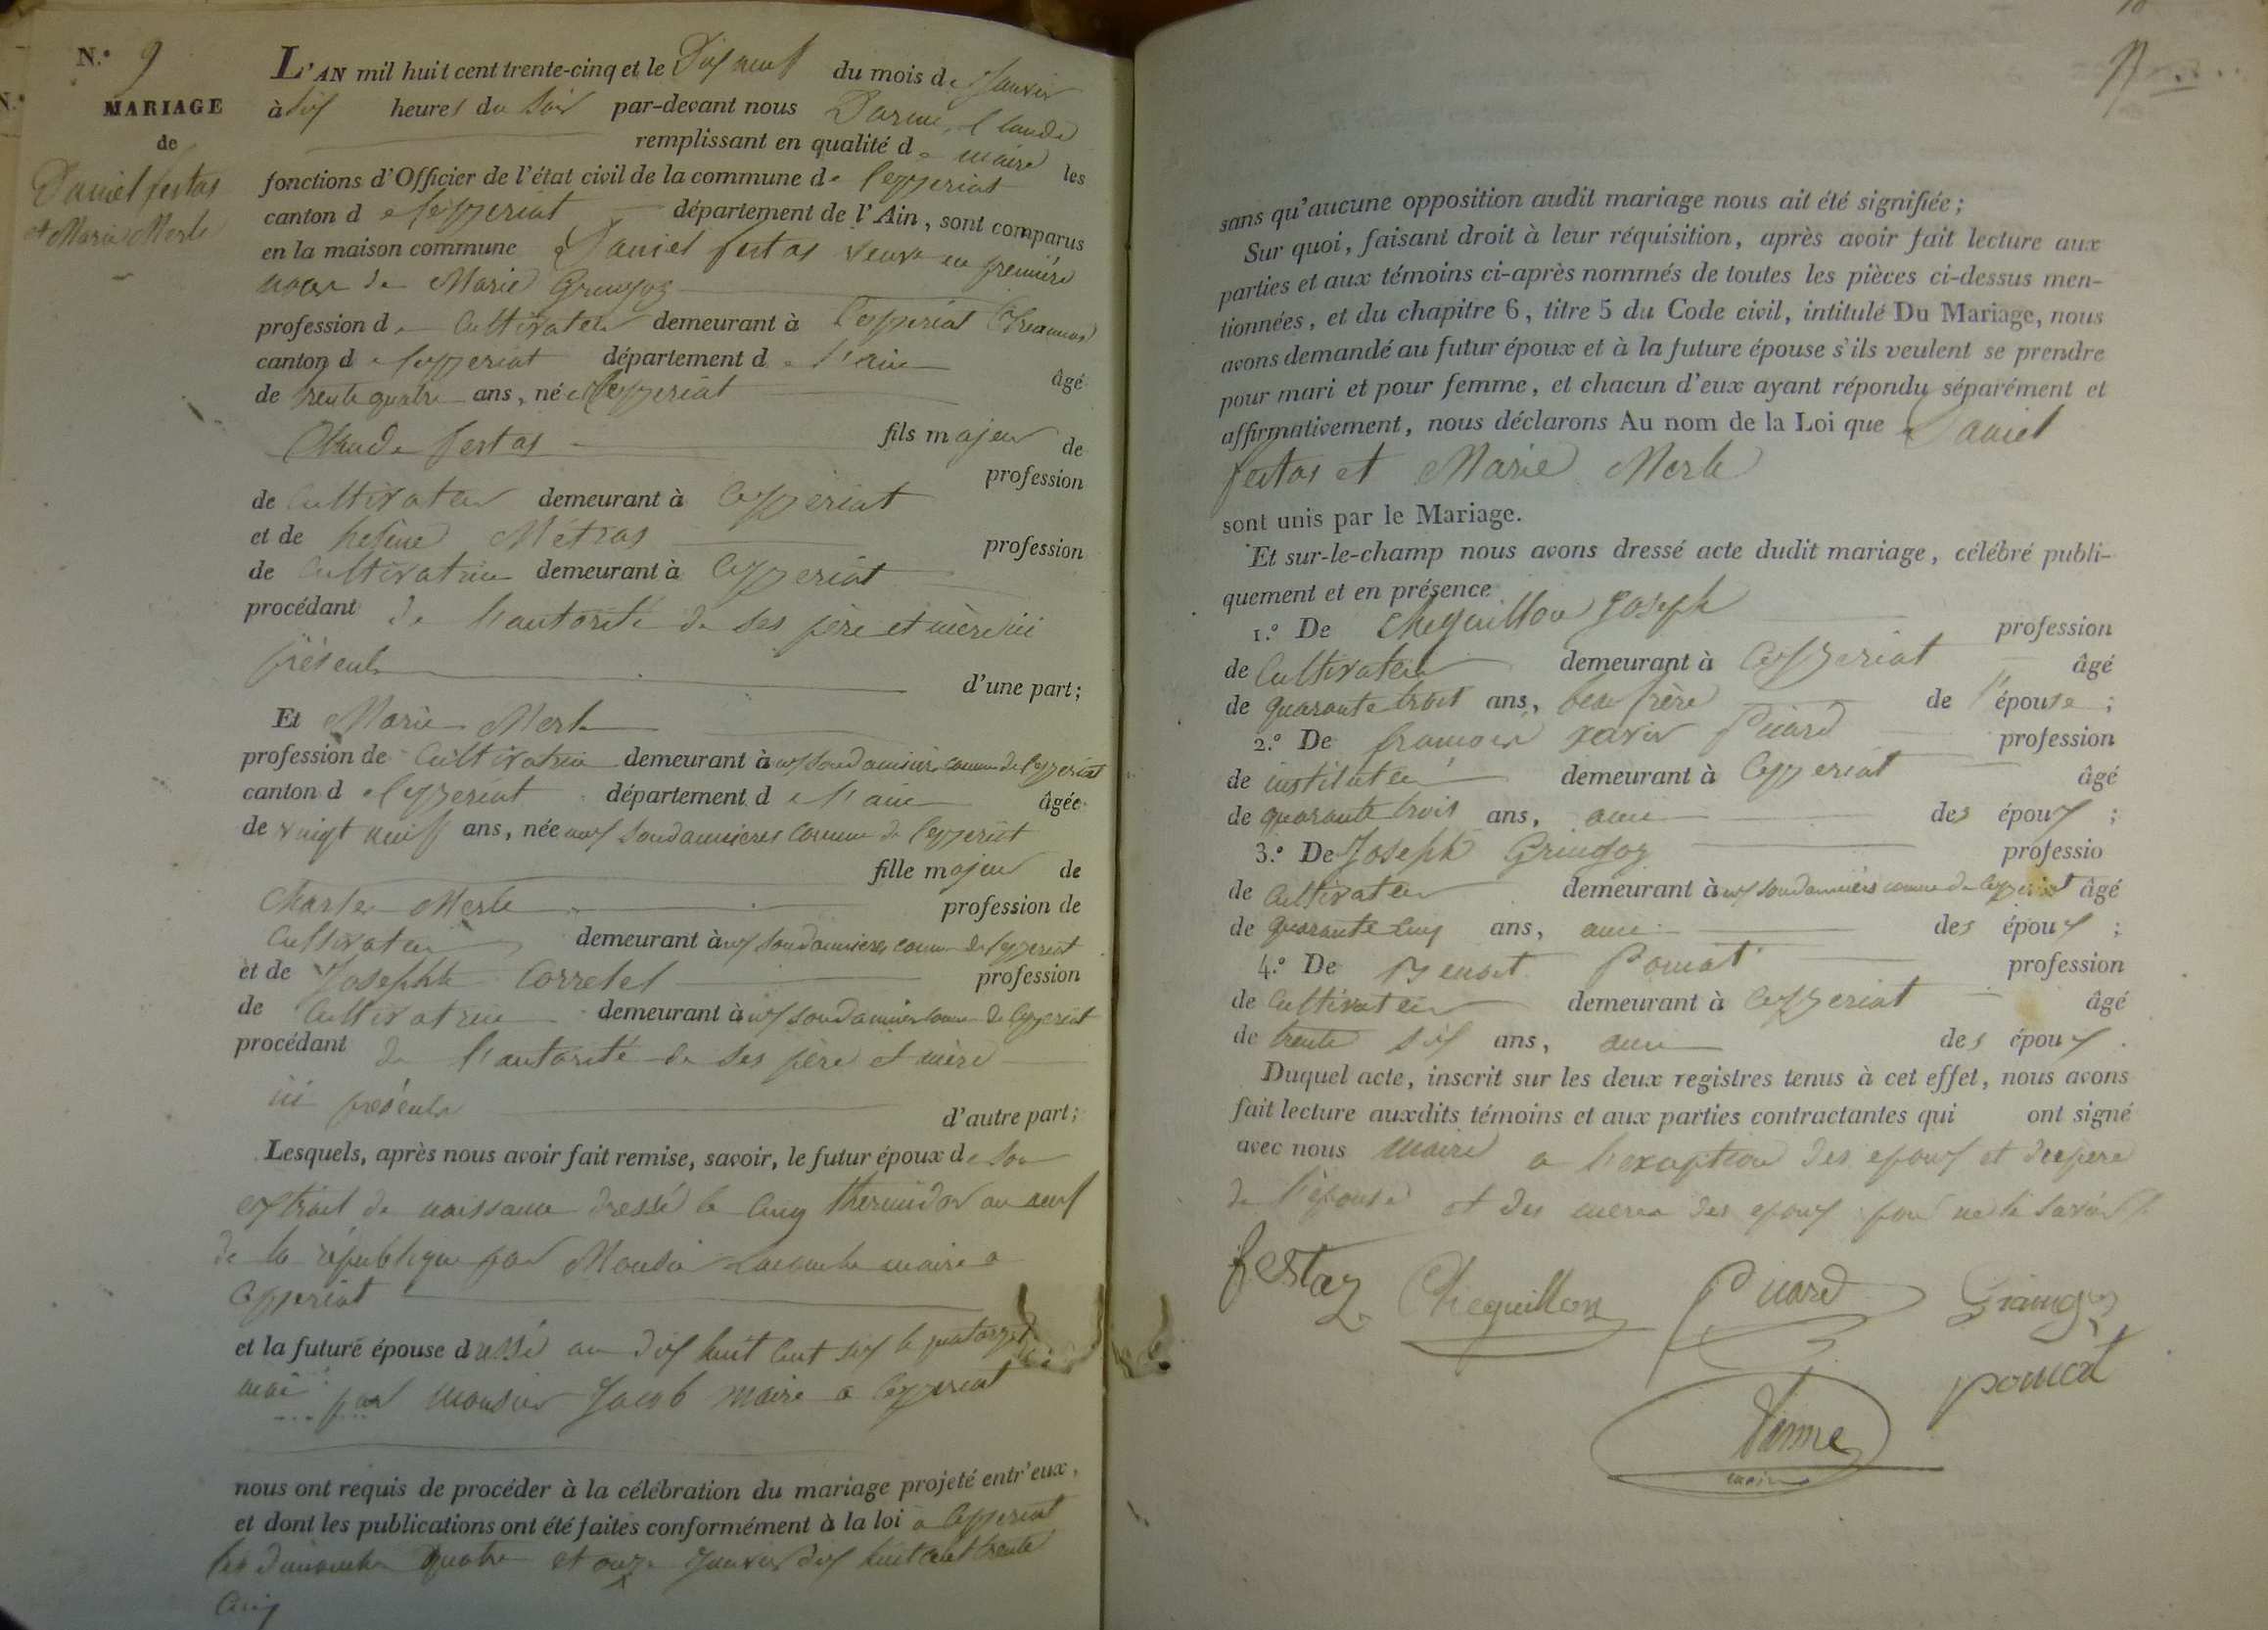 N.° 9
MARIAGE
de
Daniel festas
et Marie Merle
L'AN mil huit cent trente-cinq et le Dix neuf du mois de Janvier
à six heures du Soir par-devant nous Darme Claude
remplissant en qualité de maire les
fonctions d'Officier de l'état civil de la commune de Ceyzeriat
canton de Ceyzeriat département de l'Ain, sont comparus
en la maison commune Daniel festas veuve en première
noce de Marie Gringoz
profession de Cultivateur demeurant à Ceyzeriat
canton de Ceyzeriat département de l'ain âgé
de trente quatre ans, né a Ceyzeriat
fils majeur de
Claude festas profession
de Cultivateur demeurant à Ceyzeriat
et de heleine Métras profession
de Cultivatrice demeurant à Ceyzeriat
procédant de l'autorité de ses père et mère ici
présents d'une part;
Et Marie Merle
profession de Cultivatrice demeurant à commune de Ceyzeriat
canton de Ceyzeriat département de l'ain âgée
de vingt neuf ans, née commune de Ceyzeriat
fille majeur de
Charles Merle profession de
Cultivateur demeurant à commune de Ceyzeriat
et de Josephte Corretel profession
de Cultivatrice demeurant à commune de Ceyzeriat
procédant de l'autorité de ses père et mère
ici présents d'autre part;
Lesquels, après nous avoir fait remise, savoir, le futur époux de son
extrait de naissance dressé le cinq thermidor an neuf
de la république par Monsieur maire a
Ceyzeriat
et la future épouse dressé an dix huit cent six le quatorze
mai par monsieur Jacob maire a Ceyzeriat
nous ont requis de procéder à la célébration du mariage projeté entr'eux,
et dont les publications ont été faites conformément à la loi a Ceyzeriat
les dimanche quatre et onze Janvier dix huit cent trente
Cinq
sans qu'aucune opposition audit mariage nous ait été signifiée;
Sur quoi, faisant droit à leur réquisition, après avoir fait lecture aux
parties et aux témoins ci-après nommés de toutes les pièces ci-dessus men-
tionnées, et du chapitre 6, titre 5 du Code civil, intitulé Du Mariage, nous
avons demandé au futur époux et à la future épouse s'ils veulent se prendre
pour mari et pour femme, et chacun d'eux ayant répondu séparément et
affirmativement, nous déclarons Au nom de la Loi que Daniel
festas et Marie Merle
sont unis par le Mariage.
Et sur-le-champ nous avons dressé acte dudit mariage, célébré publi-
quement et en présence
1.° De Chequillon Joseph profession
de Cultivateur demeurant à Ceyzeriat âgé
de quarante trois ans, beau frère de l'épouse;
2.° De françois xavier Picard profession
de instituteur demeurant à Ceyzeriat âgé
de quarante trois ans, ami des époux;
3.° De Joseph Gringoz professio
de Cultivateur demeurant à commune de Ceyzeriat âgé
de quarante cinq ans, ami des époux;
4.° De Benoit Poncet profession
de Cultivateur demeurant à Ceyzeriat âgé
de trente six ans, ami des époux.
Duquel acte, inscrit sur les deux registres tenus à cet effet, nous avons
fait lecture auxdits témoins et aux parties contractantes qui ont signé
avec nous maire a l'exception des epoux et du pere
de l'épouse et des meres des epoux pour ne le savoir
festaz Chequillon Picard Graingoz
poncet
Darme
maire